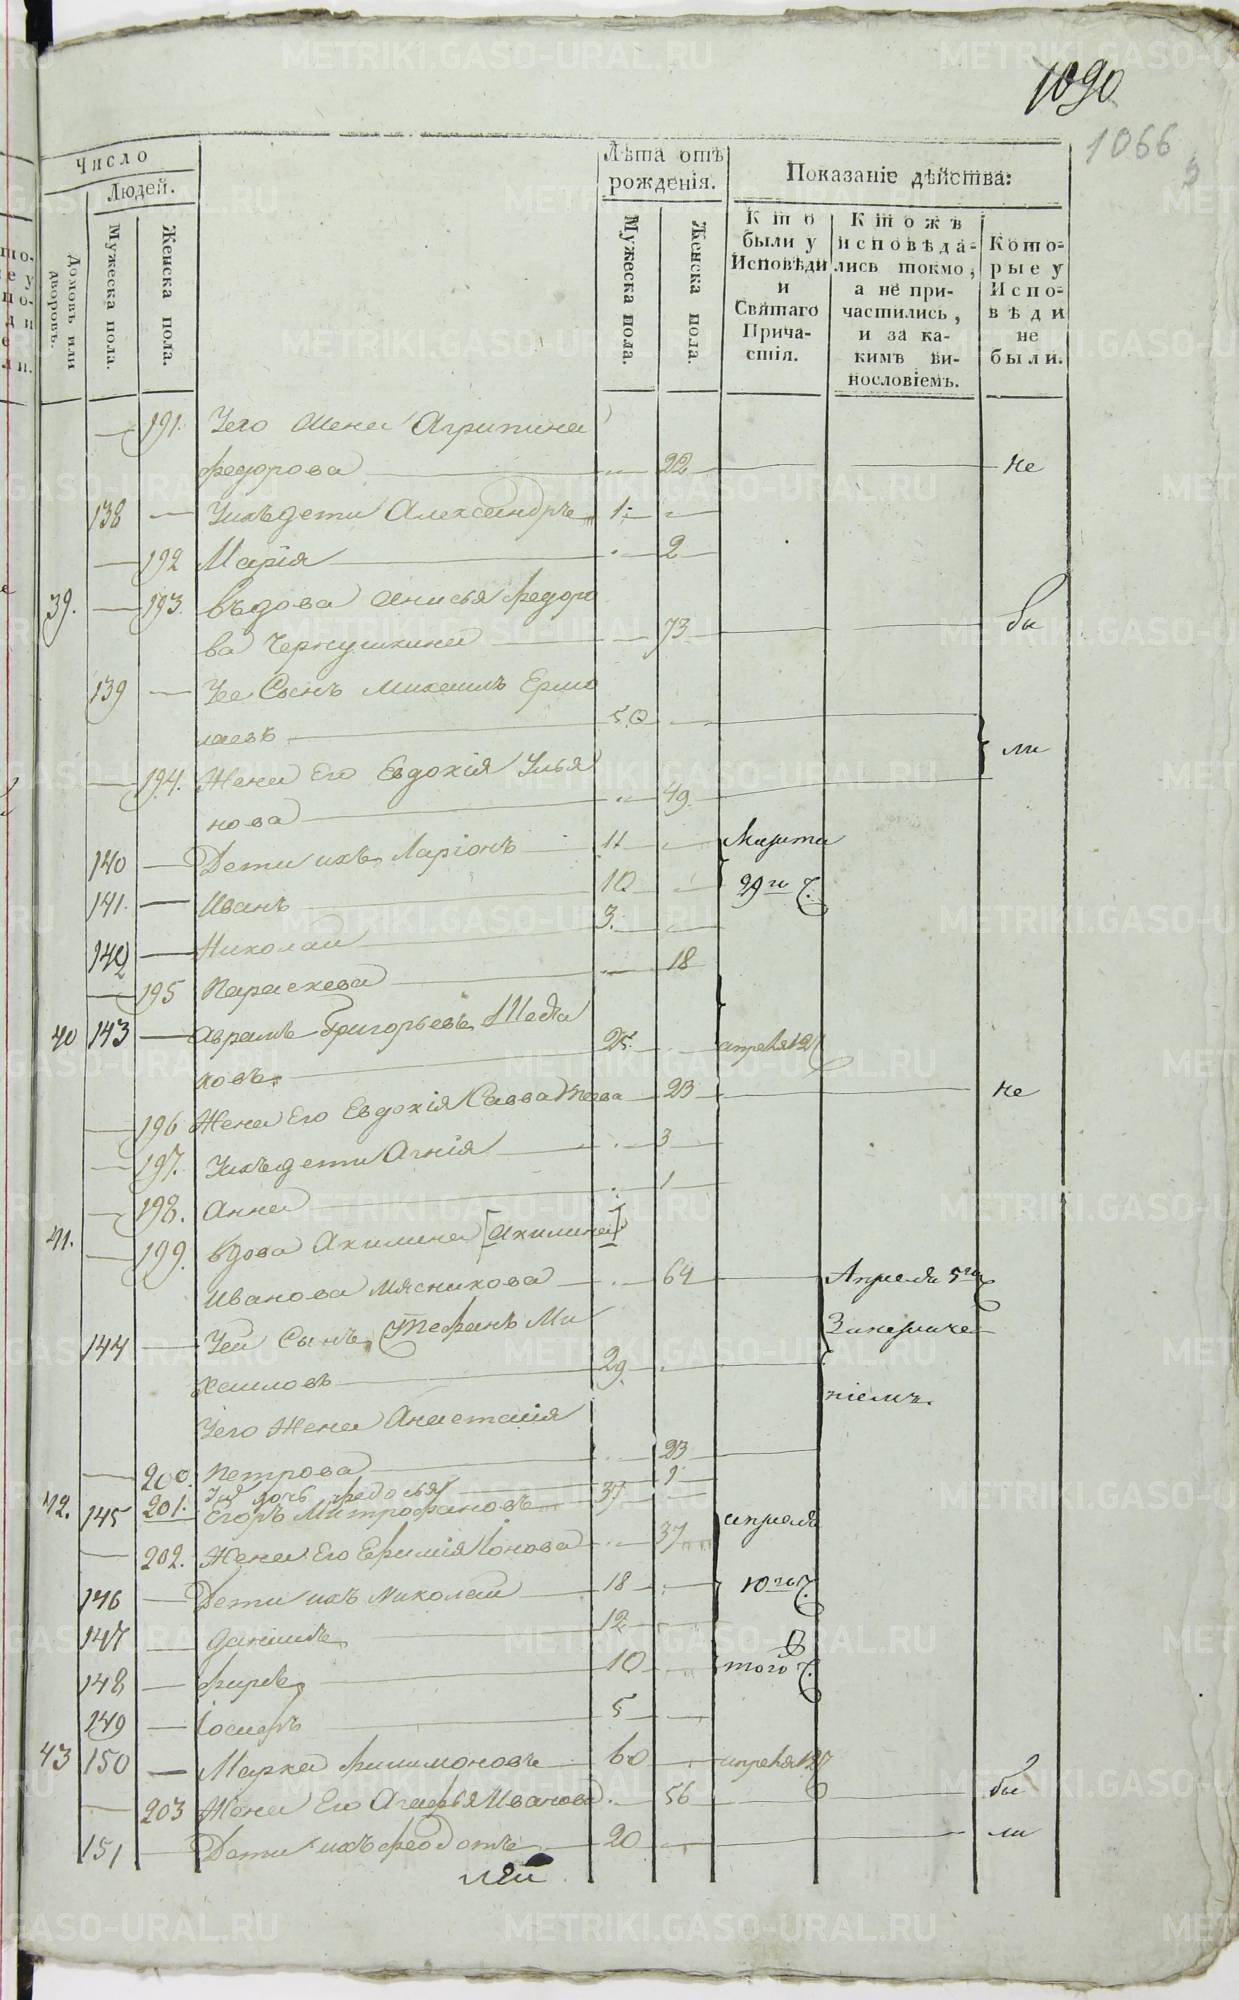 1090
1066
Число
Людей.
Домовъ или дворовъ.
Мужеска пола.
Женска пола.
Лѣта отъ рожденія.
Мужеска пола.
Женска пола.
Показаніе дѣйства:
Кто были у Исповѣди и Святаго Причастія.
Ктожъ исповѣдались токмо, а не причастились, и за какимъ винословіемъ.
Которые у Исповѣди не были.
191. Его Жена Агрипина
Федорова 22 не
138 Ихъ дети Александръ 1
192 Марія 2
39. 193. Въдова Анисья Федоро
ва Чернушкина 73 бы
139 Ее Сынъ Михаилъ Ермо
лаевъ 50 ли
194. Жена Его Евдокія Илья
нова 49
140 Дети ихъ Ларіонъ 11 Марта
141. Иванъ 10 29го ч.
142 Николай 3.
195 Параскева 18
40 143 Аврамъ Григорьевъ
ковъ 25. апреля 12
196 Жена Его Евдокія Савватеева 23 не
197. Ихъ дети Агнія 3
198. Анна 1
41. 199. Вдова Акилина [Акилина]
Иванова Мясникова 64 Апреля 5го
144 Ея Сынъ Стефанъ Ми
хаиловъ 29
ніемъ.
Его Жена Анастасія
200. Петрова 23
201. дочь Федосья
42. 145 Егоръ Митрофановъ 37 апреля
202. Жена Его Ефимія Іонова 37
146 Дети ихъ Николай 18 10го ч.
147 Даніилъ 12
148 Фирсъ 10 того ч.
149 Іосифъ 5
43 150 Марка Филимоновъ 60 апреля
203 Жена Его Агафья Иванова 56 бы
151 Дети ихъ Феодотъ 20 ли
лей
METRIKI.GASO-URAL.RU